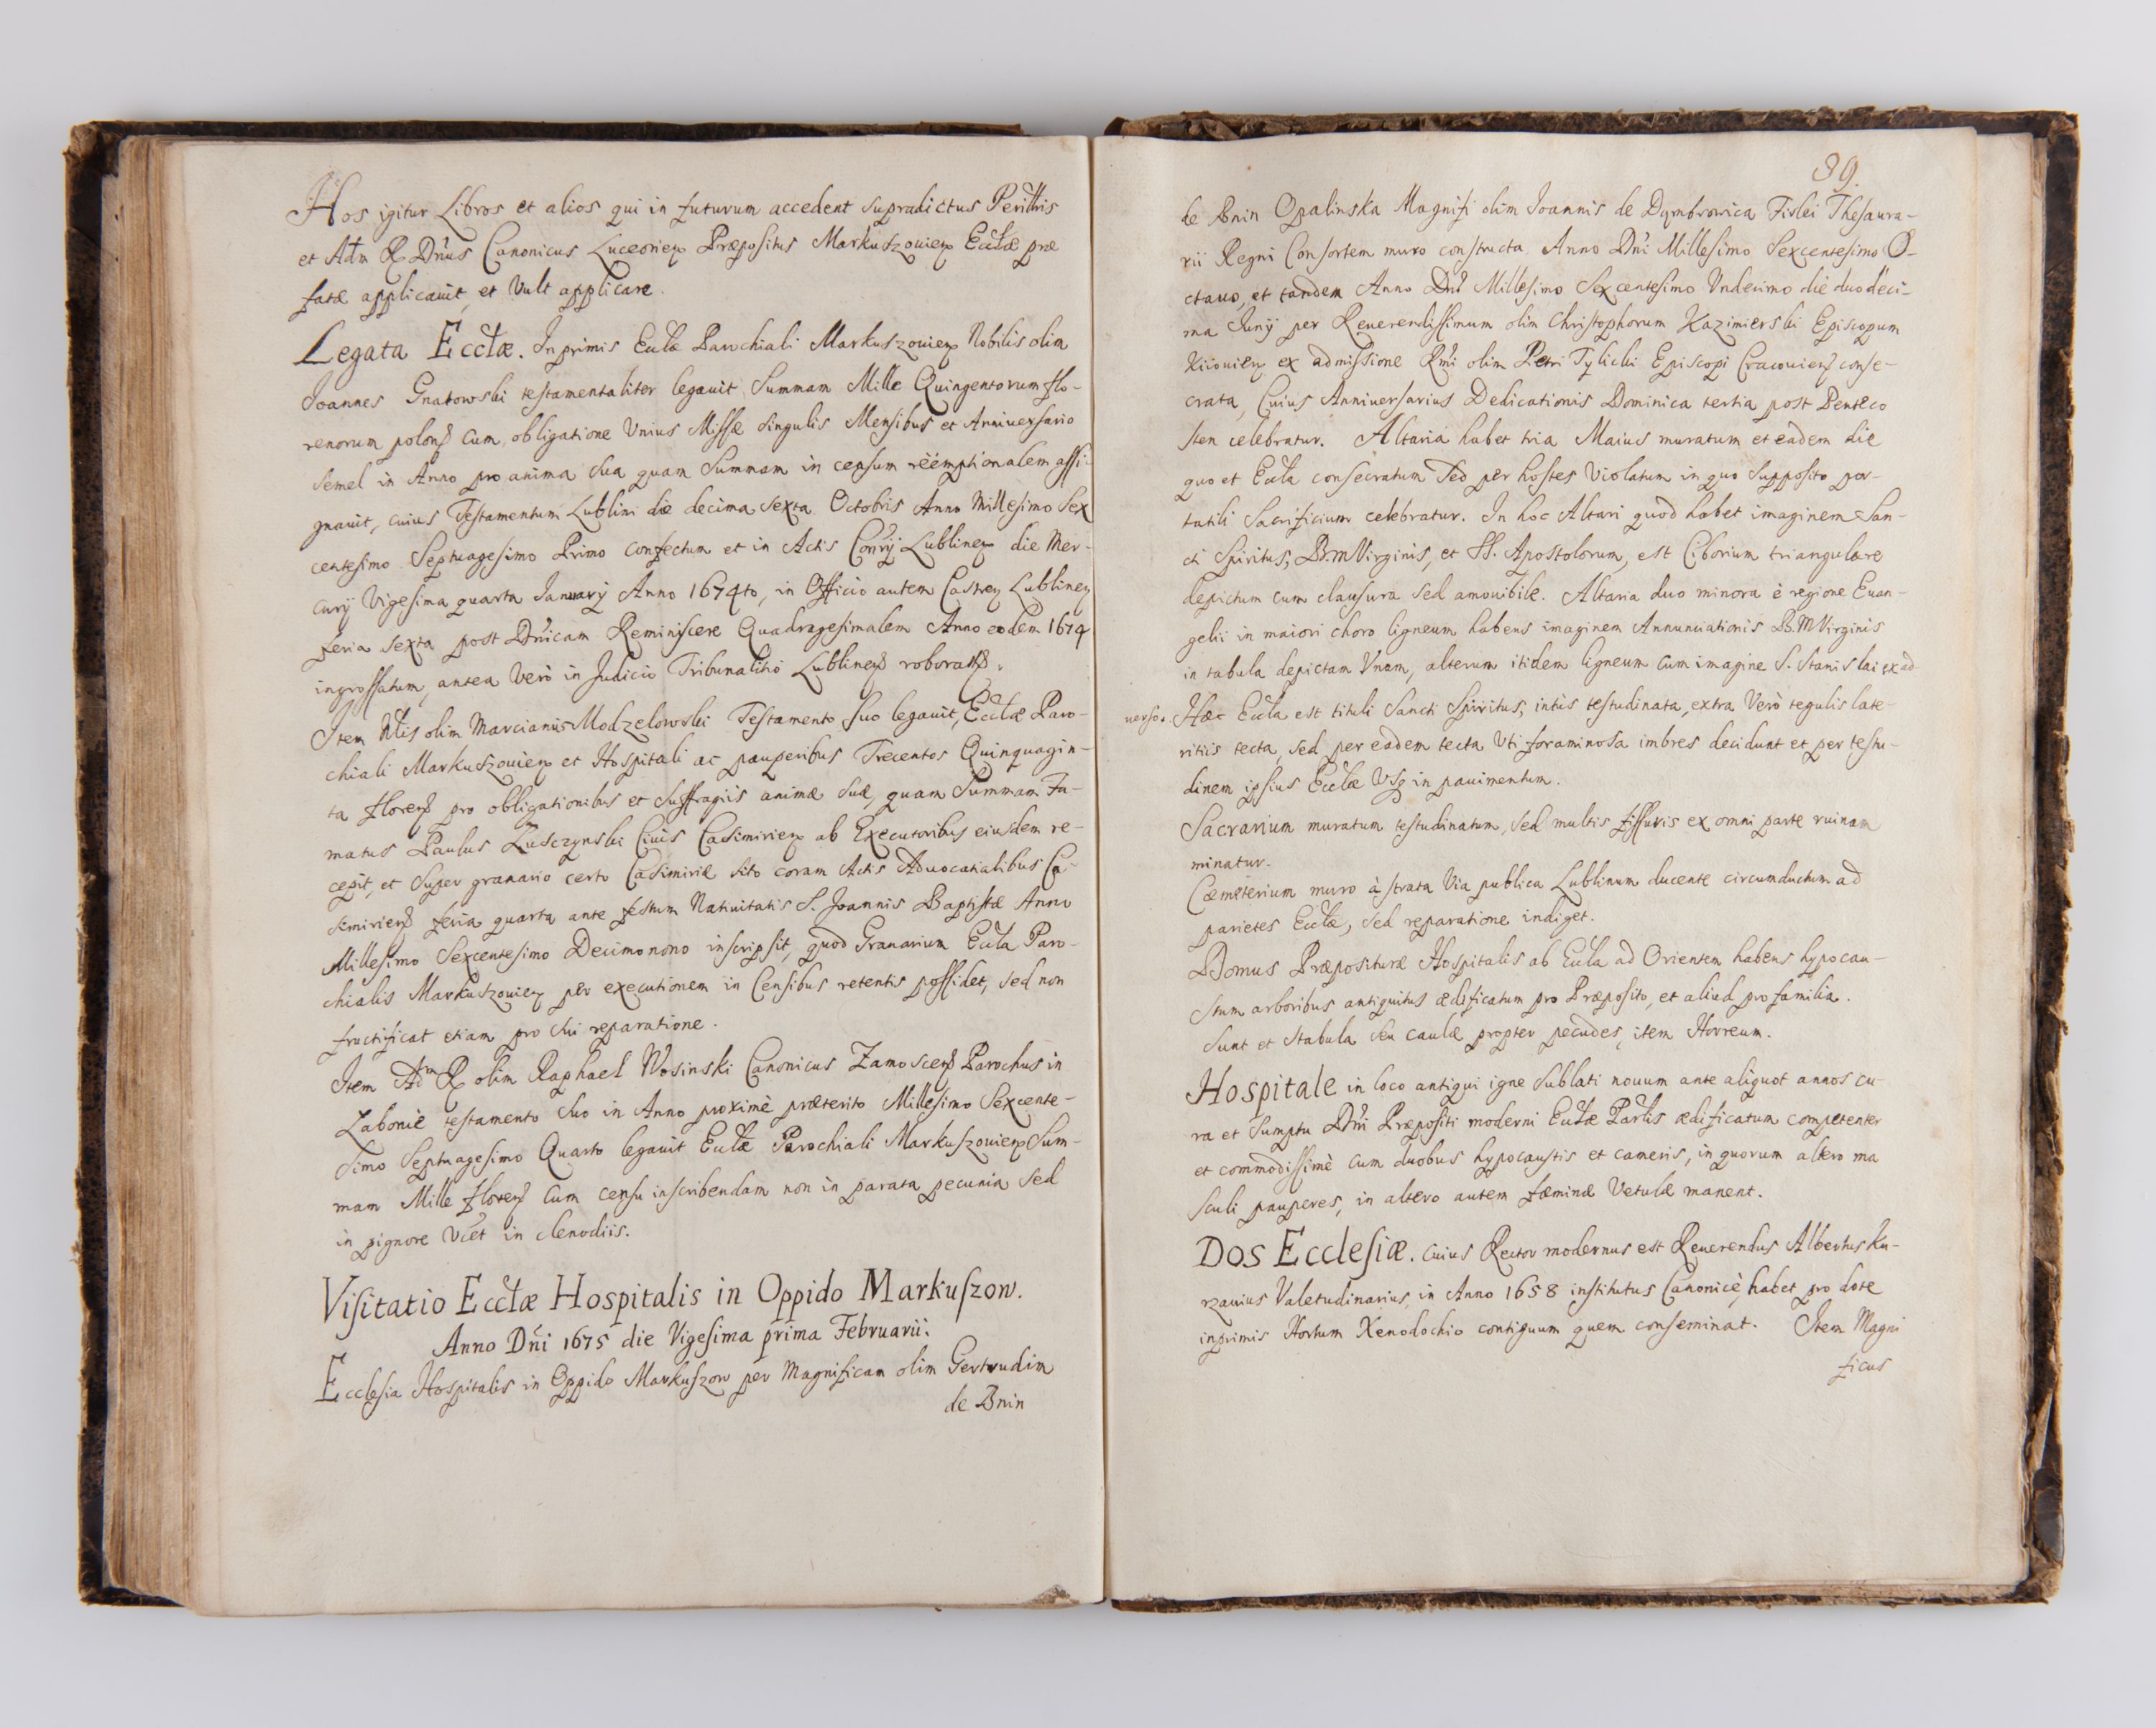 Hos igitur Libros et alios qui in futurum accedent supradictus Perillris
et Adm R. Dnus Canonicus Luceorien Præpositus Markuszovien Ecclæ præ
fatæ applicavit, et Vult applicare.
Legata Ecclæ. In primis Ecclæ Parochiali Markuszovien Nobilis olim
Joannes Gnatowski testamentaliter legavit Summam Mille Quingentorum flo-
renorum polon cum obligatione Unius Missæ singulis Mensibus et Anniversario
semel in Anno pro anima sua quam Summam in censum reëmptionalem assi-
gnavit, cuius Testamentum Lublini die decima sexta Octobris Anno Millesimo Sex
centesimo Septuagesimo Primo confectum et in Actis Lublinen die Mer-
curij Vigesima quarta January Anno 1674to, in Officio autem Castren Lublinen
feria sexta post Dnicam Reminiscere Quadragesimalem Anno eodem 1674
ingrossatum, antea verò in Judicio Tribunalitio Lublinen
Item olim Marcianus Modzelowski Testamento suo legavit, Ecclæ Paro-
chiali Markuszovien et Hospitali ac pauperibus Trecentos Quinquagin-
ta floren pro obligationibus et suffragiis animæ suæ, quam Summam Fa-
matus Paulus Civis Casimirien ab Executoribus eiusdem re-
cepit, et super granario certo Casimiriæ sito coram Actis Advocatialibus Ca-
simirien feria quarta ante festum Nativitatis S. Joannis Baptistæ Anno
Millesimo Sexcentesimo Decimonono inscripsit, quod Granarium Eccla Paro-
chialis Markuszovien per executionem in Censibus retentis possidet, sed non
fructificat etiam pro sui reparatione.
Item Adm R. olim Raphael Wosinski Canonicus Zamoscen Parochus in
Łabonie testamento suo in Anno proximè præterito Millesimo Sexcente-
simo Septuagesimo Quarto legavit Ecclæ Parochiali Markuszovien Sum-
mam Mille floren cum censu inscribendam non in parata pecunia sed
in pignore Vcet in clenodiis.
Visitatio Ecclæ Hospitalis in Oppido Markuszow.
Anno Dni 1675 die Vigesima prima Februarii.
Ecclesia Hospitalis in Oppido Markuszow per Magnificam olim Gertrudim
de Bnin
89.
de Bnin Opalinska Magnifi olim Joannis de Dąmbrowica Firlei Thesaura-
rii Regni Consortem muro constructa Anno Dni Millesimo Sexcentesimo O-
ctavo, et tandem Anno Dni Millesimo Sexcentesimo Undecimo die duodeci-
ma Juny per Reuerendissimum olim Christophorum Kazimierski Episcopum
Kijovien ex admissione Rmi olim Petri Tylicki Episcopi Cracovien conse-
crata, Cuius Anniversarius Dedicationis Dominica tertia post Penteco
sten celebratur. Altaria habet tria Maius muratum et eadem die
quo et Eccla consecratum Sed per hostes Violatum in quo supposito por-
tatili Sacrificium celebratur. In hoc Altari quod habet imaginem San-
cti Spiritus, B.M Virginis, et SS. Apostolorum, est Ciborium triangulare
depictum cum clausura sed amovibile. Altaria duo minora è regione Evan-
gelii in maiori choro ligneum habens imaginem Annunciationis B.M Virginis
in tabula depictam Unum, alterum itidem ligneum cum imagine S. Stanislai ex ad
verso. Hæc Eccla est tituli Sancti Spiritus, intùs testudinata, extra Verò tegulis late-
ritiis tecta, sed per eadem tecta Uti foraminosa imbres decidunt et per testu-
dinem ipsius Ecclæ Usq in pavimentum.
Sacrarium muratum testudinatum, sed multis fissuris ex omni parte ruinam
minatur.
Cæmeterium muro à strata Via publica Lublinum ducente circumductum ad
parietes Ecclæ, sed reparatione indiget.
Domus Præpositure Hospitalis ab Eccla ad Orientem habens hypocau-
stum arboribus antiquitus ædificatum pro Præposito, et aliud pro familia.
Sunt et stabula seu caulæ propter pecudes, item Horreum.
Hospitale in loco antiqui igne sublati novum ante aliquot annos cu-
ra et sumptu Dni Præpositi moderni Ecclæ Parlis ædificatum competenter
et commodissimè cum duobus hypocaustis et cameris, in quorum altero ma
sculi pauperes, in altero autem fæminæ Vetulæ manent.
Dos Ecclesiæ. cuius Rector modernus est Reuerendus Albertus Ku-
rzavius Valetudinarius, in Anno 1658 institutus Canonicè, habet pro dote
inprimis Hortum Xenodochio contiguum quem conseminat. Item Magni
ficus